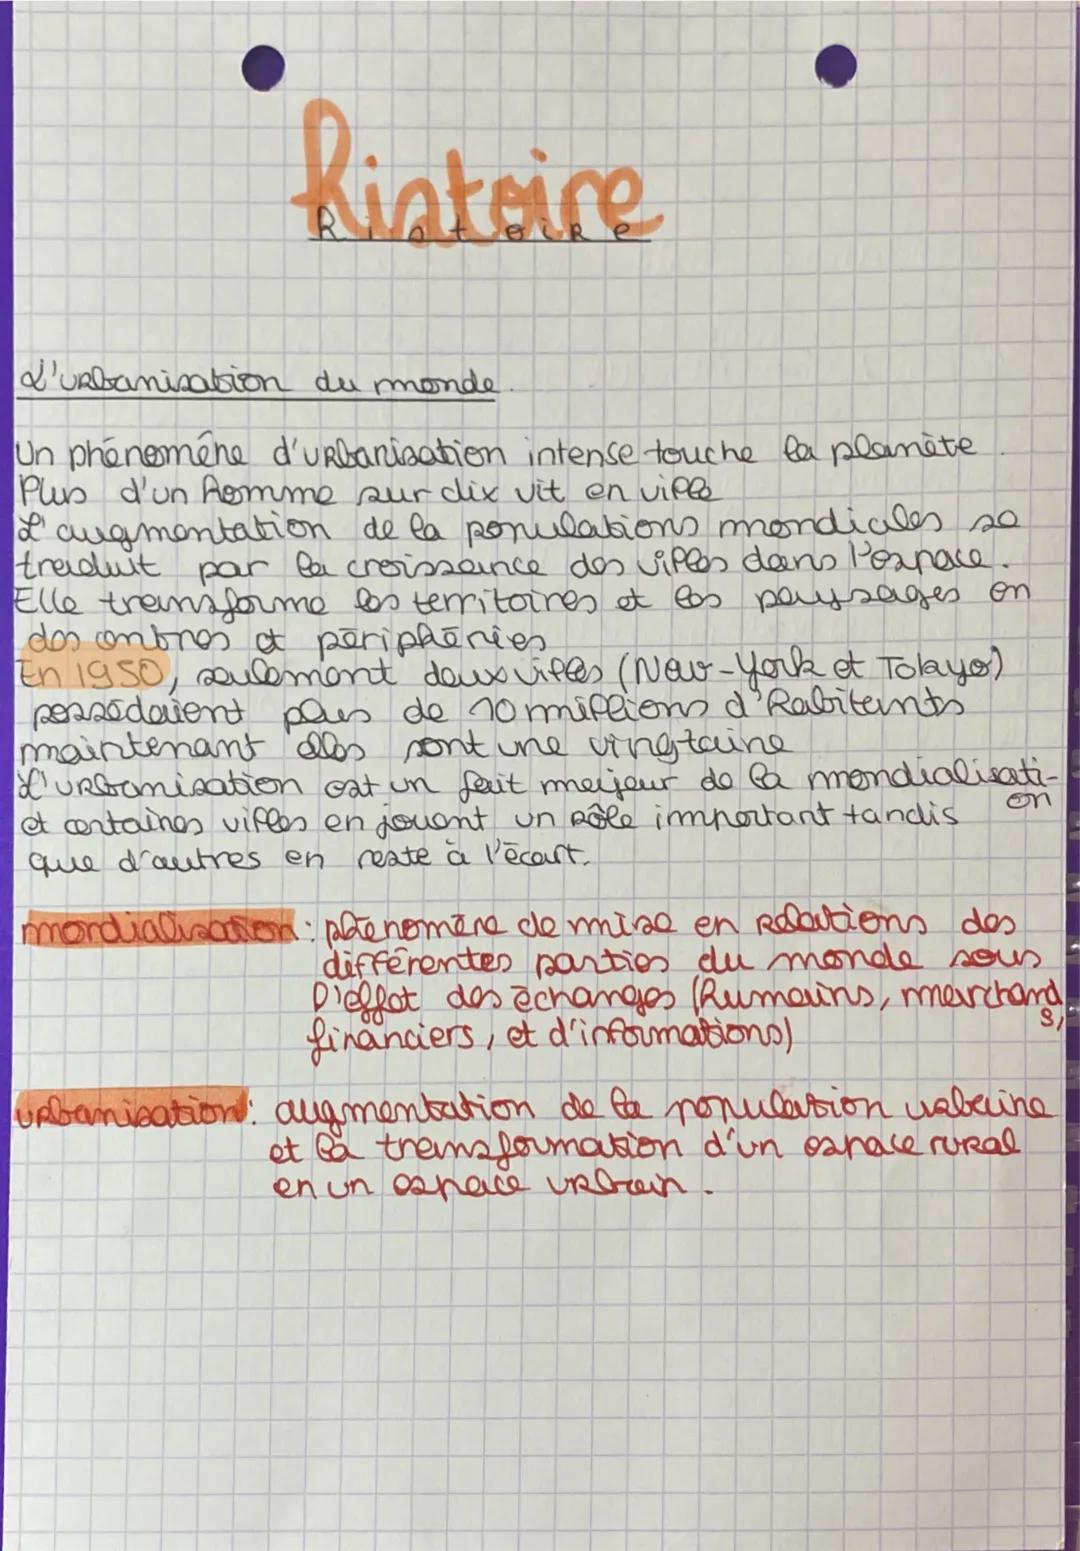 histoire
histoire
L'urbanisation du monde.
Un phénoméne d'urbanisation intense touche la planète.
Plus d'un homme sur dix vit en ville
L'augmentation de la populations mondiales se
traduit par la croissance des villes dans l'espace.
Elle transforme les territoires et les paysages en
des centres et périphéries
En 1950, seulement deux villes (New-York et Tokyo)
possédaient plus de 10 millions d'habitants
maintenant elles sont une vingtaine
L'urbanisation est un fait majeur de la mondialisati-
on
et certaines villes en jouent un rôle important tandis
que d'autres en reste à l'écart.
mondialisation : phénomène de mise en relations des
différentes parties du monde sous
l'effet des échanges (humains, marchand
s,
financiers, et d'informations)
urbanisation : augmentation de la population urbaine
et la transformation d'un espace rural
en un espace urbain.